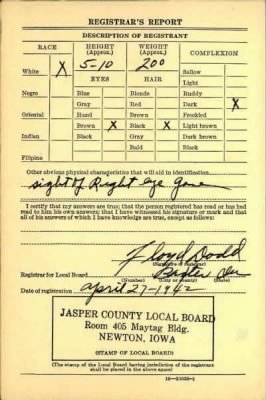 REGISTRAR'S REPORT
DESCRIPTION OF REGISTRANT
RACE HEIGHT (Approx.) WEIGHT (Approx.) COMPLEXION
White X 5-10 200 Sallow
EYES HAIR Light
Negro Blue Blonde Ruddy
Gray Red Dark X
Oriental Hazel Brown Freckled
Brown X Black X Light brown
Indian Black Gray Dark brown
Bald Black
Filipino
Other obvious physical characteristics that will aid in identification
sight of Right eye gone
I certify that my answers are true; that the person registered has read or has had
read to him his own answers; that I have witnessed his signature or mark and that
all of his answers of which I have knowledge are true, except as follows:
Floyd Dodd
(Signature of registrar)
Registrar for Local Board Baxter
(Number) (City or county) (State)
Date of registration April 27-1942
JASPER COUNTY LOCAL BOARD
Room 405 Maytag Bldg.
NEWTON, IOWA
(STAMP OF LOCAL BOARD)
(The stamp of the Local Board having jurisdiction of the registrant
shall be placed in the above space)